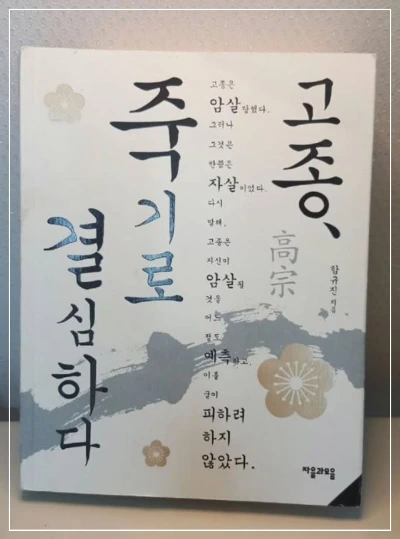 고종,
죽기로
결심하다
高宗
함규진 지음
고종은
암살당했다.
그러나
그것은
반쯤은
자살이었다.
다시
말해,
고종은
자신이
암살될
것을
어느
정도
예측하고,
이를
굳이
피하려
하지
않았다.
자음과모음